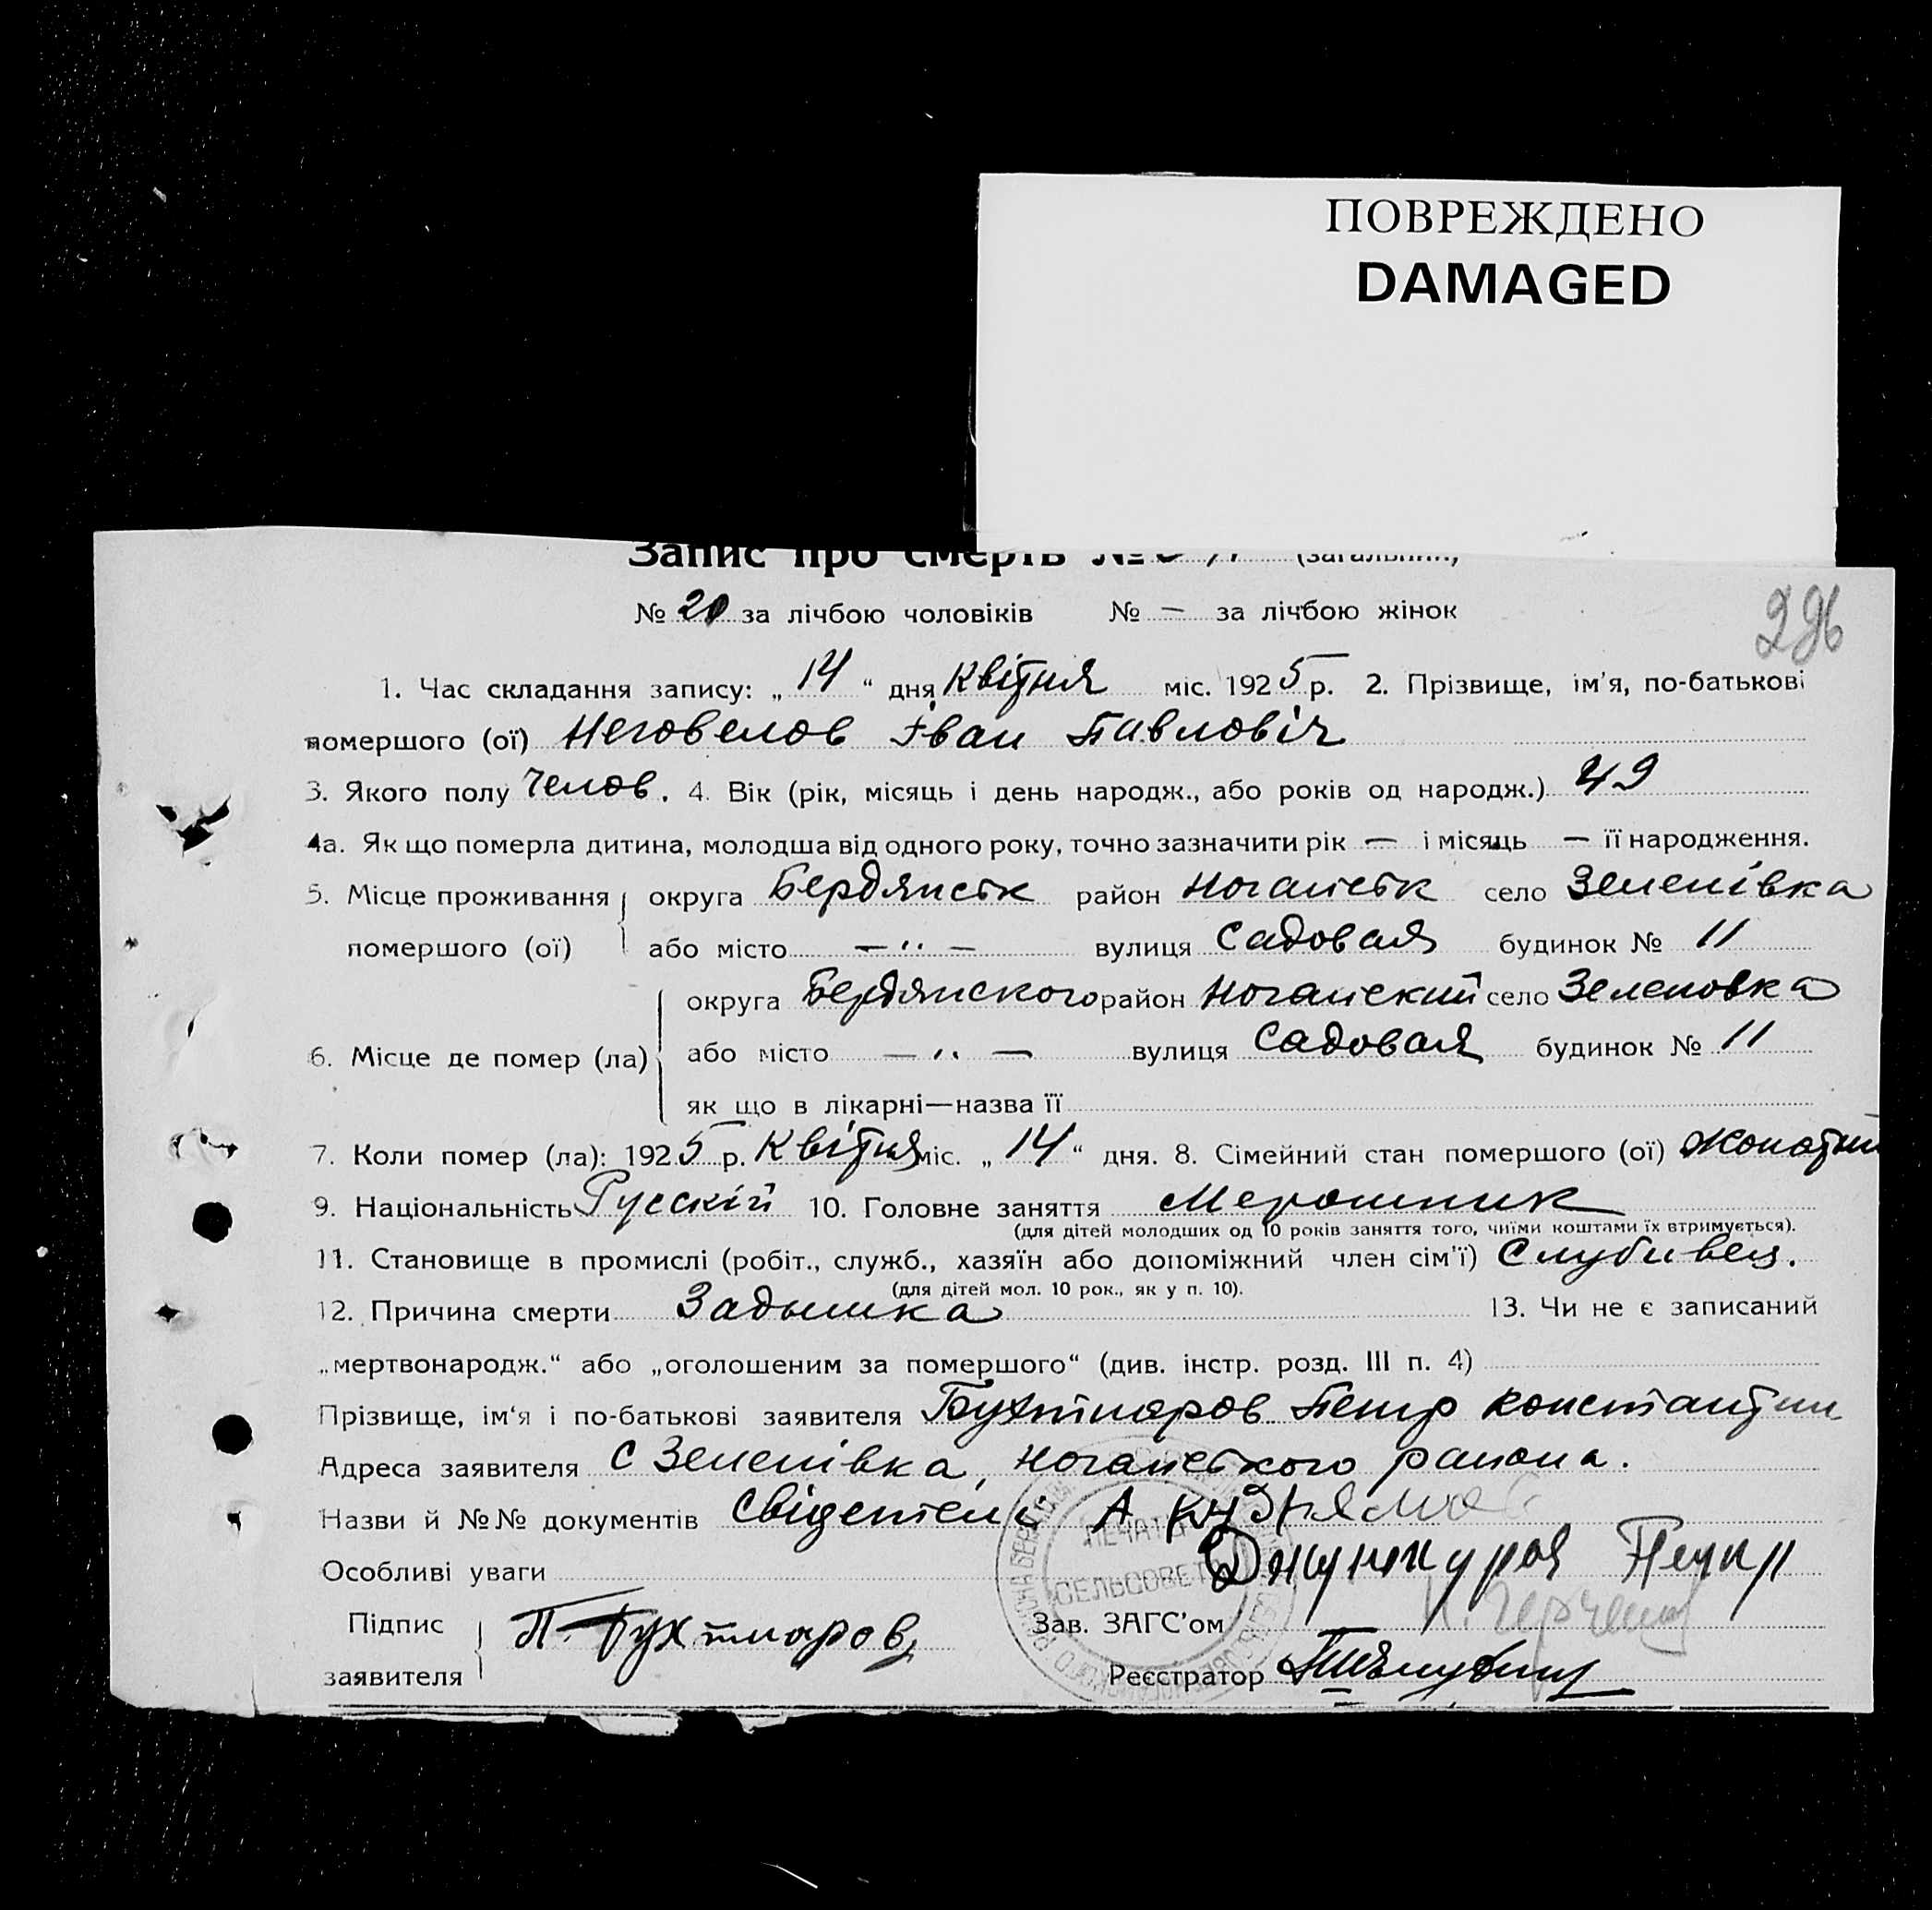 ПОВРЕЖДЕНО
DAMAGED
Запис про смерть № (загальний)
296
№ 20 за лічбою чоловіків № — за лічбою жінок
1. Час складання запису: „ 14 “ дня Квітня міс. 1925 р. 2. Прізвище, ім'я, по-батькові
помершого (ої) Неговелов Іван Павловіч
3. Якого полу Челов. 4. Вік (рік, місяць і день народж., або років од народж.) 49
4а. Як що померла дитина, молодша від одного року, точно зазначити рік — і місяць — її народження.
5. Місце проживання округа Бердянськ район Ногайськ село Зеленівка
помершого (ої) або місто — " — вулиця Садовая будинок № 11
округа Бердянского район Ногайский село Зеленовка
6. Місце де помер (ла) або місто — " — вулиця Садовая будинок № 11
як що в лікарні—назва її
7. Коли помер (ла): 1925 р. Квітня міс. „ 14 “ дня. 8. Сімейний стан помершого (ої) Жонатий
9. Національність Русскій 10. Головне заняття Мерошник
(для дітей молодших од 10 років заняття того, чиїми коштами їх втримується).
11. Становище в промислі (робіт., служб., хазяїн або допоміжний член сім'ї)
(для дітей мол. 10 рок., як у п. 10).
12. Причина смерти Задышка 13. Чи не є записаний
„мертвонародж.“ або „оголошеним за помершого“ (див. інстр. розд. III п. 4)
Прізвище, ім'я і по-батькові заявителя Бухтиаров Петр Константин
Адреса заявителя С Зеленівка, Ногайського района.
Назви й №№ документів Свідетели А
Особливі уваги Петр
Підпис П. Бухтиаров Зав. ЗАГС'ом
заявителя Реєстратор
ПЕЧАТЬ
СЕЛЬСОВЕТ